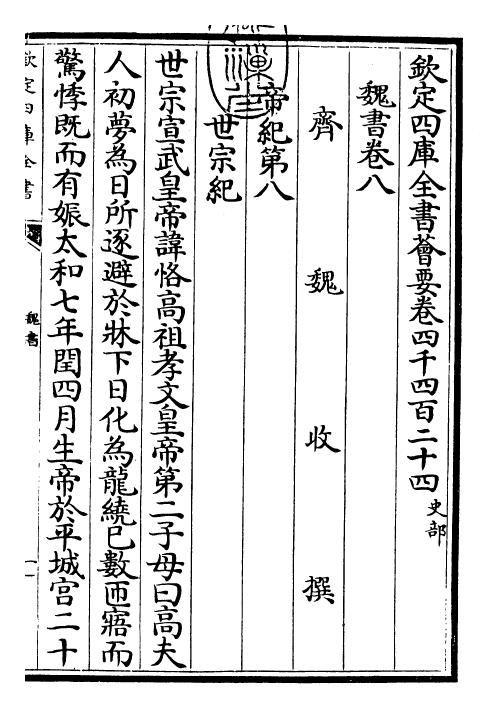 欽定四庫全書薈要卷四千四百二十四 史部
魏書卷八
齊 魏 收 撰
帝紀第八
世宗紀
世宗宣武皇帝諱恪高祖孝文皇帝第二子母曰高夫
人初夢為日所逐避於牀下日化為龍繞已數匝寤而
驚悸既而有娠太和七年閏四月生帝於平城宫二十
欽定四庫全書
魏書
一